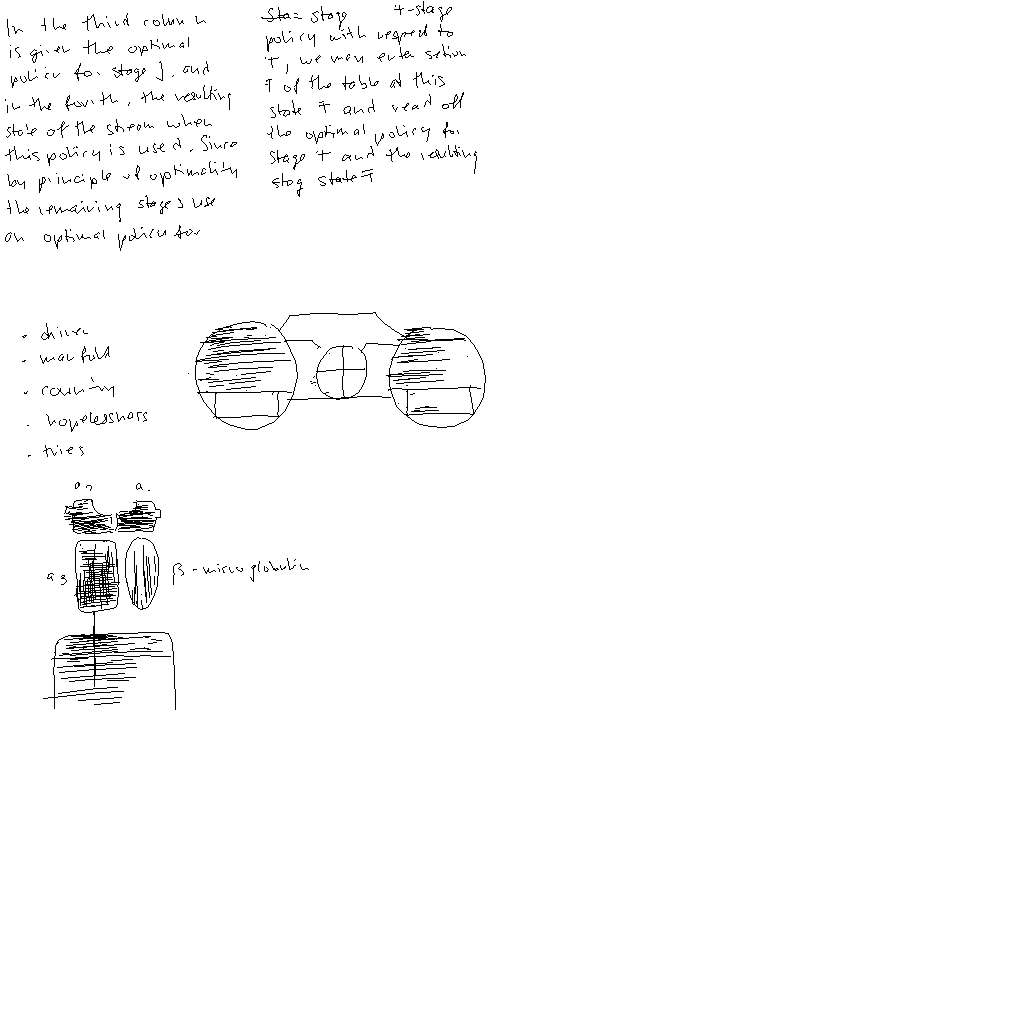 In the third column
is given the optimal
policy for stage J, and
in the fourth, the resulting
state of the stream when
this policy is used. Since
by principle of optimality
the remaining stages use
an optimal policy for
stage T-stage
policy with respect to
T, we may enter section
T of the table at this
state T and read off
the optimal policy for
stage T and the resulting
stag state T
- manifold
- hopelessness
- tries
a2 a1
a3 β-microglobulin